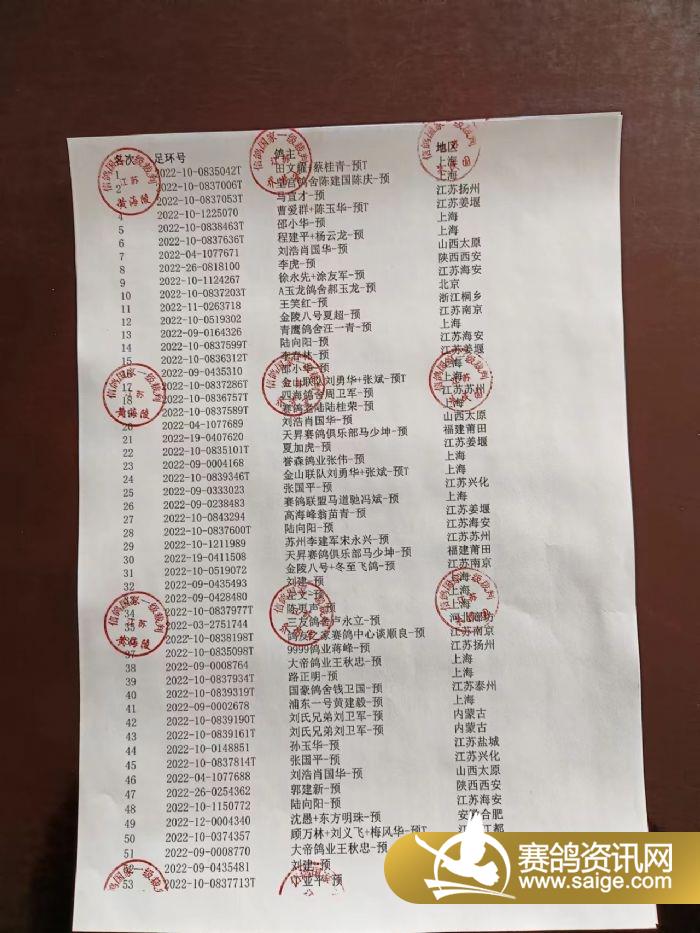 名次 足环号 鸽主 地区
1 2022-10-0835042T 田文耀+蔡桂青-预T 上海
2 2022-10-0837006T 皇宫鸽舍陈建国陈庆-预 上海
2022-10-0837053T 马宣才-预 江苏扬州
4 2022-10-1225070 曹爱群+陈玉华-预T 江苏姜堰
5 2022-10-0838463T 邵小华-预 上海
6 2022-10-0837636T 程建平+杨云龙-预 上海
7 2022-04-1077671 刘浩肖国华-预 山西太原
8 2022-26-0818100 李虎-预 陕西西安
9 2022-10-1124267 徐永先+涂友军-预 江苏海安
10 2022-10-0837203T A玉龙鸽舍郝玉龙-预 北京
11 2022-11-0263718 王笑红-预 浙江桐乡
12 2022-10-0519302 金陵八号夏超-预 江苏南京
13 2022-09-0164326 青鹰鸽舍汪一青-预 上海
14 2022-10-0837599T 陆向阳-预 江苏海安
15 2022-10-0836312T 李春林-预 江苏姜堰
2022-09-0435310 邵小华-预 上海
17 2022-10-0837286T 金山联队刘勇华+张斌-预T 上海
18 2022-10-0836757T 四海鸽舍周卫军-预 江苏苏州
2022-10-0837589T 赛鸽老陆陆桂荣-预 上海
20 2022-04-1077689 刘浩肖国华-预 山西太原
21 2022-19-0407620 天昇赛鸽俱乐部马少坤-预 福建莆田
22 2022-10-0835101T 夏加虎-预 江苏姜堰
23 2022-09-0004168 誉森鸽业张伟-预 上海
24 2022-10-0839346T 金山联队刘勇华+张斌-预T 上海
25 2022-09-0333023 张国平-预 江苏兴化
26 2022-09-0238483 赛鸽联盟马道驰冯斌-预 上海
27 2022-10-0843294 高海峰翁苗青-预 江苏姜堰
28 2022-10-0837600T 陆向阳-预 江苏海安
29 2022-10-1211989 苏州李建军宋永兴-预 江苏苏州
30 2022-19-0411508 天昇赛鸽俱乐部马少坤-预 福建莆田
31 2022-10-0519072 金陵八号+冬至飞鸽-预 江苏南京
32 2022-09-0435493 刘建-预 上海
2022-09-0428480 文-预 上海
34 2022-10-0837977T 陈更声-预 上海
35 2022-03-2751744 三友鸽舍卢永立-预 河北廊坊
2022-10-0838198T 鸽友之家赛鸽中心谈顺良-预 江苏南京
37 2022-10-0835098T 9999鸽业蒋峰-预 江苏扬州
38 2022-09-0008764 大帝鸽业王秋忠-预 上海
39 2022-10-0837934T 路正明-预 上海
40 2022-10-0839319T 国豪鸽舍钱卫国-预 江苏泰州
41 2022-09-0002678 浦东一号黄建毅-预 上海
42 2022-10-0839190T 刘氏兄弟刘卫军-预 内蒙古
43 2022-10-0839161T 刘氏兄弟刘卫军-预 内蒙古
44 2022-10-0148851 孙玉华-预 江苏盐城
45 2022-10-0837814T 张国平-预 江苏兴化
46 2022-04-1077688 刘浩肖国华-预 山西太原
47 2022-26-0254362 郭建新-预 陕西西安
48 2022-10-1150772 陆向阳-预 江苏海安
49 2022-12-0004340 沈愚+东方明珠-预 安徽合肥
50 2022-10-0374357 顾万林+刘义飞+梅风华-预T 江都
51 2022-09-0008770 大帝鸽业王秋忠-预
2022-09-0435481 刘建-预
53 2022-10-0837713T 亚平-预
信鸽国家一级裁判
江苏
黄海陵
赛鸽资讯网
www.saige.com